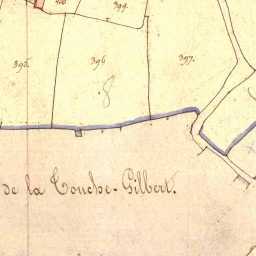 399.
395.
396
397.
de la Touche-Gilbert.